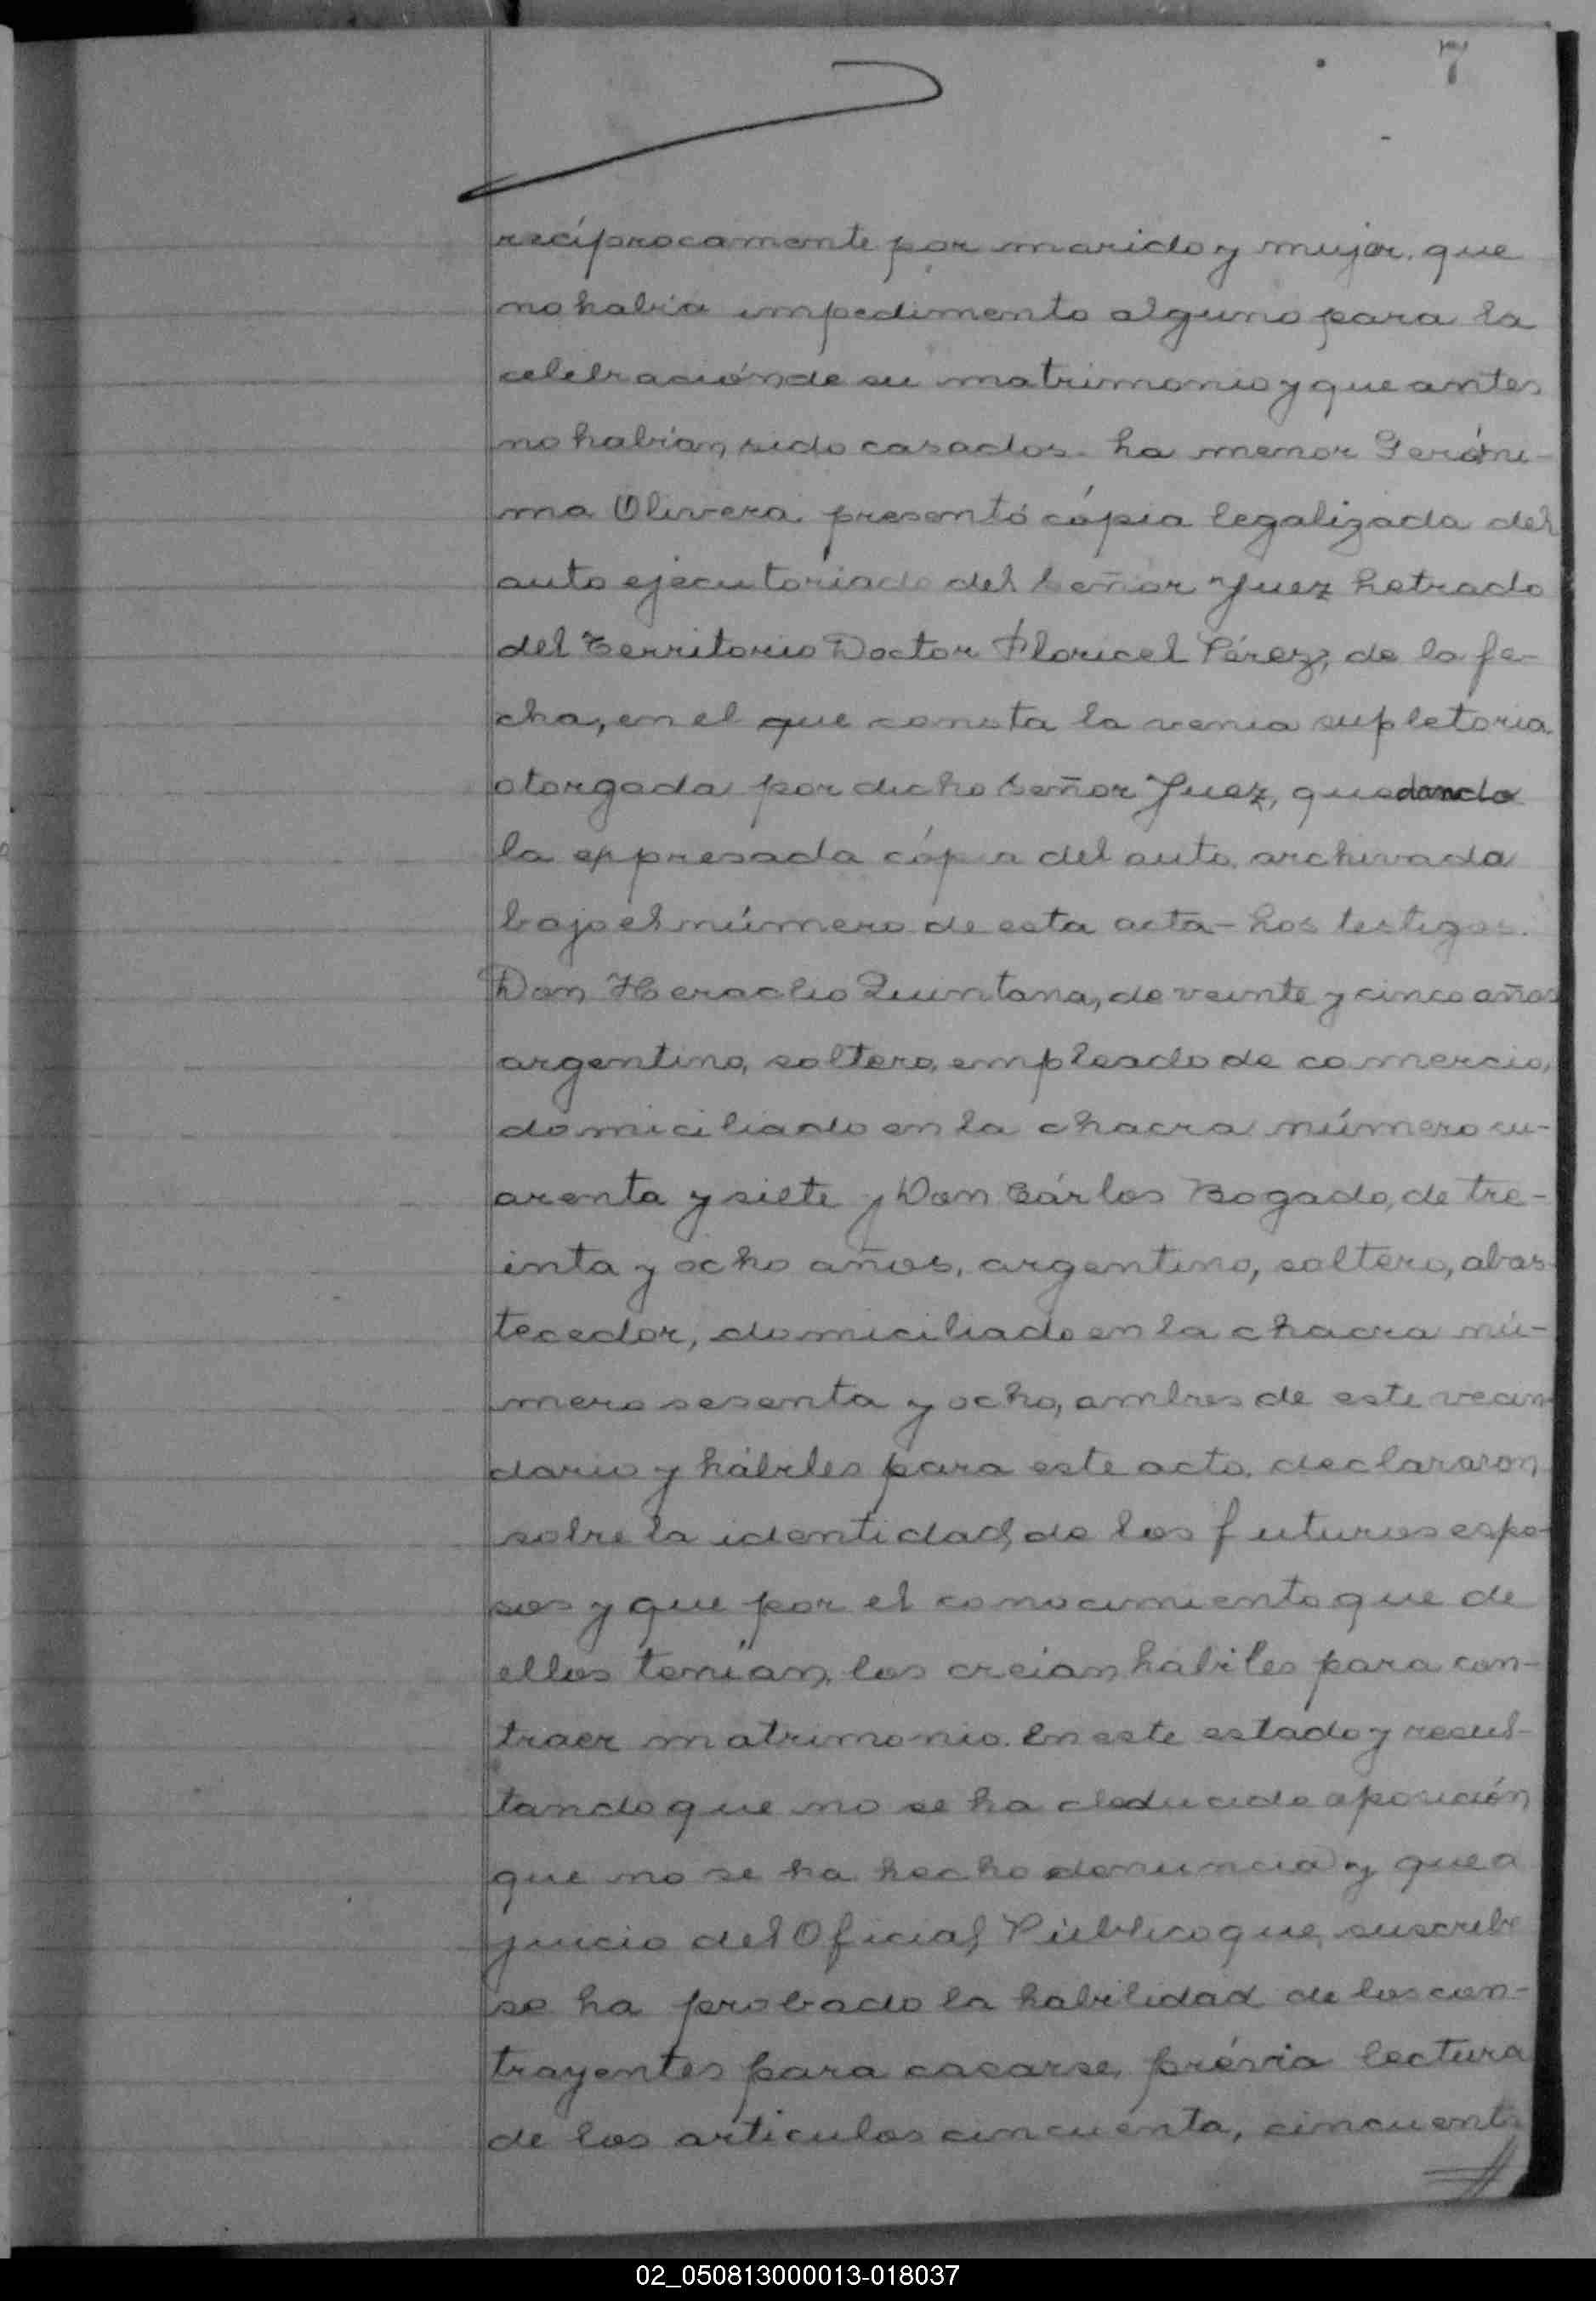 7
recíprocamente por marido y mujer, que
no había impedimento alguno para la
celebración de su matrimonio y que antes
no habían sido casados. La menor Geróni-
ma Olivera presentó cópia legalizada del
auto ejecutoriado del Señor Juez Letrado
del Territorio Doctor Floricel Pérez, de la fe-
cha, en el que consta la venia supletoria
otorgada por dicho Señor Juez, quedando
la expresada cópia del auto archivada
bajo el número de esta acta - Los testigos.
Don Heraclio Quintana, de veinte y cinco años
argentino, soltero, empleado de comercio,
domiciliado en la chacra número cu-
arenta y siete y Don Cárlos Bogado, de tre-
inta y ocho años, argentino, soltero, abas-
tecedor, domiciliado en la chacra nú-
mero sesenta y ocho, ambos de este vecin-
dario y hábiles para este acto, declararon
sobre la identidad de los futuros espo-
sos y que por el conocimiento que de
ellos tenían, los creían hábiles para con-
traer matrimonio. En este estado y resul-
tando que no se ha deducido oposición
que no se ha hecho denuncia y que a
juicio del Oficial Público que suscribe
se ha probado la habilidad de los con-
trayentes para casarse, prévia lectura
de los artículos cincuenta, cincuenta
02_050813000013-018037